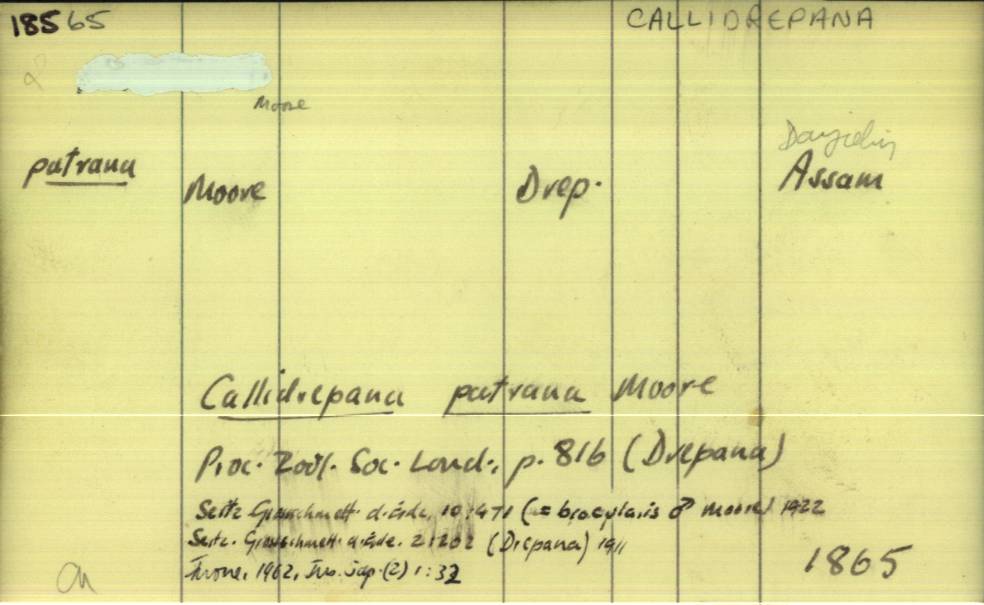 18565
CALLIDREPANA
Moore
patrana Moore Drep. Assam
Callidrepana patrana Moore
Proc. Zool. Soc. Lond., p. 816 (Drepana)
Seitz Grosschmett. d. Erde, 10:471 (= biocularis ♂ Moore) 1922
Seitz. Grosschmett. d. Erde. 2:202 (Drepana) 1911
Inoue, 1962, Ins. Jap. (2) 1:32
1865